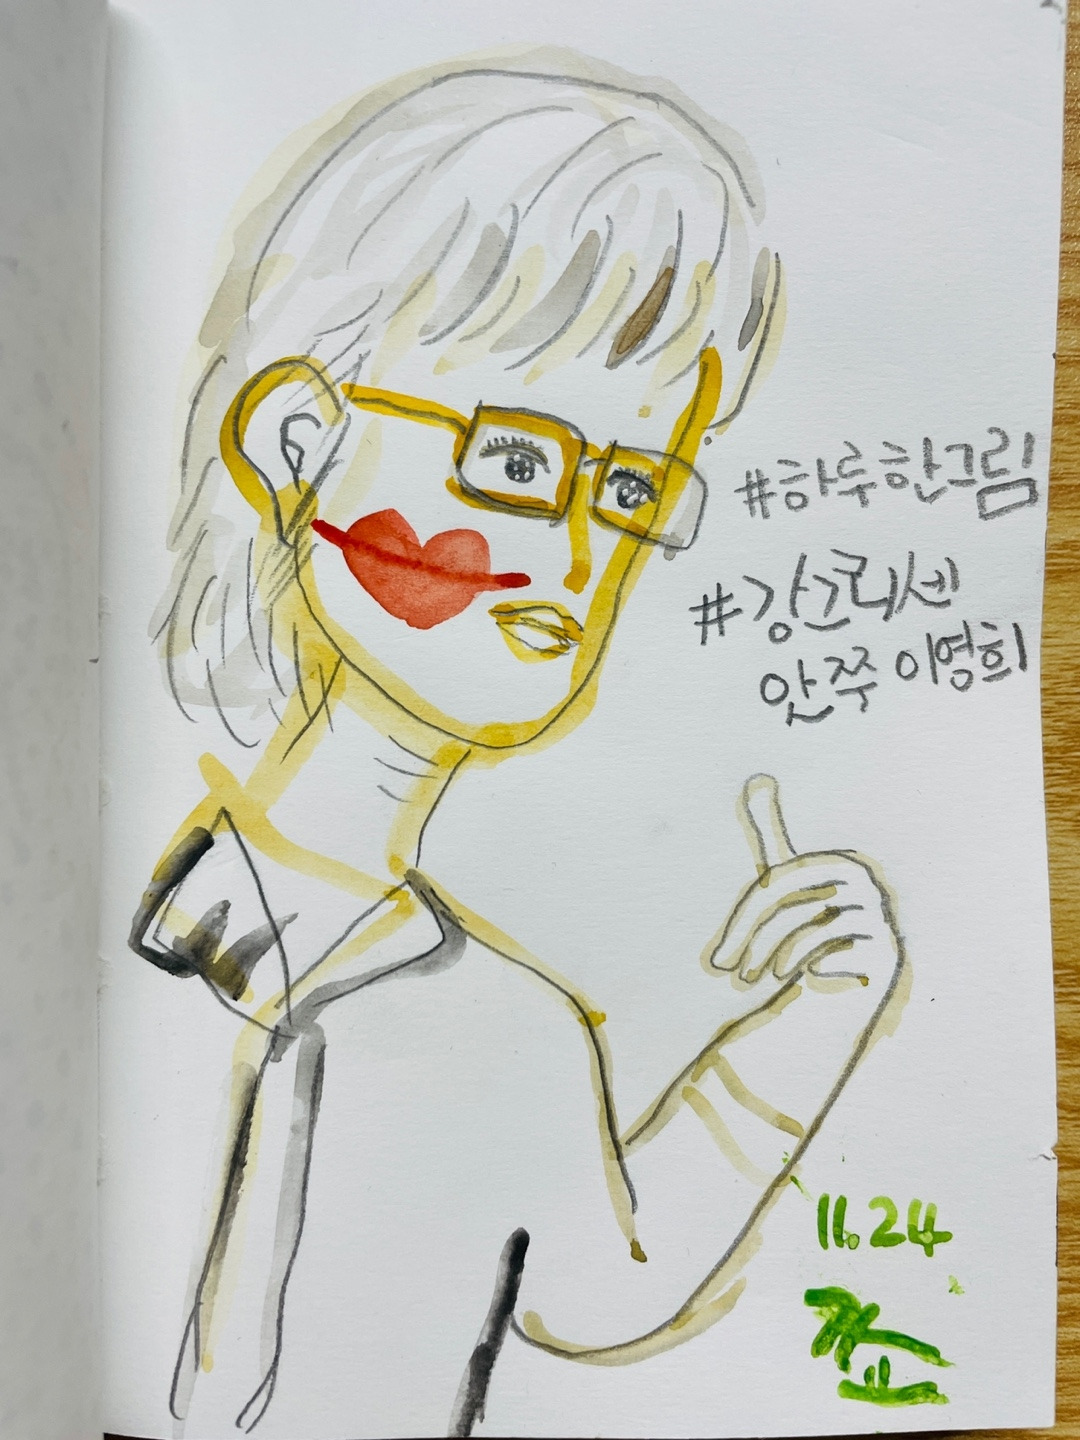 #하루한그림
#강크리센
안쭈 이영희
11.24